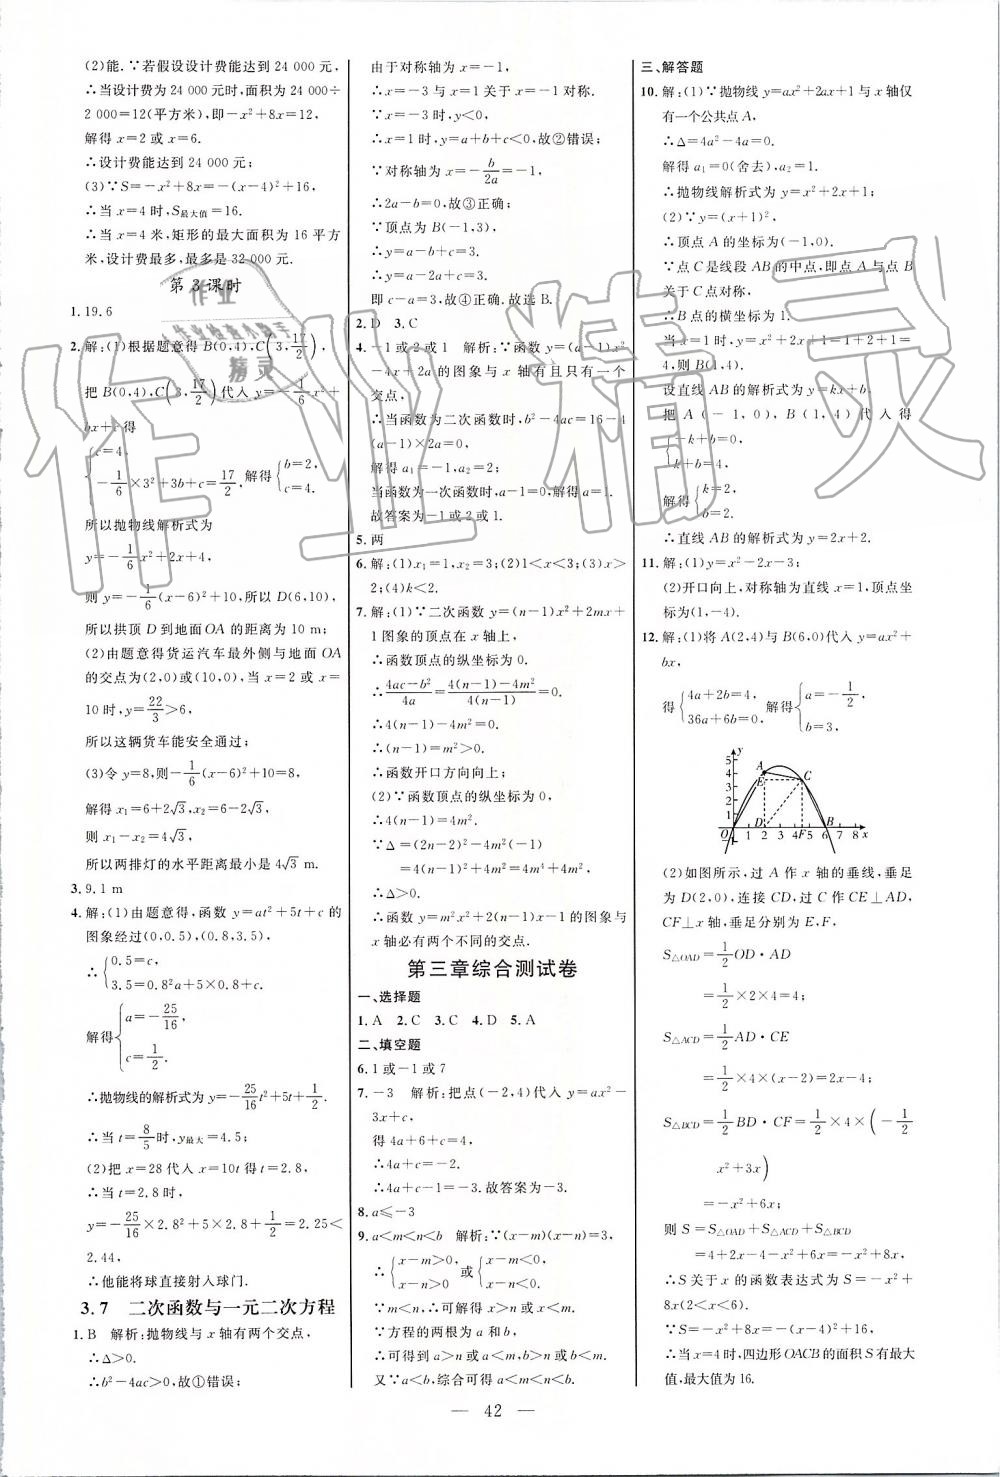 (2)能.∵若假设设计费能达到 24 000 元,
∴当设计费为 24 000 元时,面积为 24 000÷
2 000=12(平方米),即−x²+8x=12,
解得 x=2 或 x=6.
∴设计费能达到 24 000 元;
(3)∵S=−x²+8x=−(x−4)²+16,
∴当 x=4 时,S最大值=16.
∴当 x=4 米,矩形的最大面积为 16 平方
米,设计费最多,最多是 32 000 元.
第 3 课时
1. 19.6
2. 解:(1)根据题意得 B(0,4),C(3,17/2),
把 B(0,4),C(3,17/2)代入 y=−1/6x²+
bx+c 得
{c=4, −1/6×3²+3b+c=17/2. 解得{b=2, c=4.
所以抛物线解析式为
y=−1/6x²+2x+4,
则 y=−1/6(x−6)²+10,所以 D(6,10),
所以拱顶 D 到地面 OA 的距离为 10 m;
(2)由题意得货运汽车最外侧与地面 OA
的交点为(2,0)或(10,0),当 x=2 或 x=
10 时,y=22/3>6,
所以这辆货车能安全通过;
(3)令 y=8,则−1/6(x−6)²+10=8,
解得 x₁=6+2√3,x₂=6−2√3,
则 x₁−x₂=4√3,
所以两排灯的水平距离最小是 4√3 m.
3. 9.1 m
4. 解:(1)由题意得,函数 y=at²+5t+c 的
图象经过(0,0.5),(0.8,3.5),
∴{0.5=c, 3.5=0.8²a+5×0.8+c.
解得{a=−25/16, c=1/2.
∴抛物线的解析式为 y=−25/16t²+5t+1/2,
∴当 t=8/5时,y最大=4.5;
(2)把 x=28 代入 x=10t 得 t=2.8,
∴当 t=2.8 时,
y=−25/16×2.8²+5×2.8+1/2=2.25<
2.44,
∴他能将球直接射入球门.
3.7 二次函数与一元二次方程
1. B 解析:抛物线与 x 轴有两个交点,
∴Δ>0.
∴b²−4ac>0,故①错误;
由于对称轴为 x=−1,
∴x=−3 与 x=1 关于 x=−1 对称.
∵x=−3 时,y<0,
∴x=1 时,y=a+b+c<0,故②错误;
∵对称轴为 x=−b/2a=−1,
∴2a−b=0,故③正确;
∵顶点为 B(−1,3),
∴y=a−b+c=3,
∴y=a−2a+c=3.
即 c−a=3,故④正确;故选 B.
2. D 3. C
4. −1 或 2 或 1 解析:∵函数 y=(a−1)x²
−4x+2a 的图象与 x 轴有且只有一个
交点,
∴当函数为二次函数时,b²−4ac=16−4
(a−1)×2a=0,
解得 a₁=−1,a₂=2;
当函数为一次函数时,a−1=0,解得 a=1.
故答案为−1 或 2 或 1.
5. 两
6. 解:(1)x₁=1,x₂=3;(2)1<x<3;(3)x>
2;(4)k<2.
7. 解:(1)∵二次函数 y=(n−1)x²+2mx+
1 图象的顶点在 x 轴上,
∴函数顶点的纵坐标为 0.
∴4ac−b²/4a=4(n−1)−4m²/4(n−1)=0.
∴4(n−1)−4m²=0.
∴(n−1)=m²>0.
∴函数开口方向向上;
(2)∵函数顶点的纵坐标为 0,
∴4(n−1)=4m².
∵Δ=(2n−2)²−4m²(−1)
=4(n−1)²+4m²=4m⁴+4m²,
∴Δ>0.
∴函数 y=m²x²+2(n−1)x−1 的图象与
x 轴必有两个不同的交点.
第三章综合测试卷
一、选择题
1. A 2. C 3. C 4. D 5. A
二、填空题
6. 1 或−1 或 7
7. −3 解析:把点(−2,4)代入 y=ax²−
3x+c,
得 4a+6+c=4,
∴4a+c=−2.
∴4a+c−1=−3.故答案为−3.
8. a≤−3
9. a<m<n<b 解析:∵(x−m)(x−n)=3,
∴{x−m>0, x−n>0 或{x−m<0, x−n<0.
∵m<n,∴可得 x>n 或 x<m.
∵方程的两根为 a 和 b,
∴可得到 a>n 或 a<m,b>n 或 b<m.
又∵a<b,综合可得 a<m<n<b.
三、解答题
10. 解:(1)∵抛物线 y=ax²+2ax+1 与 x 轴仅
有一个公共点 A,
∴Δ=4a²−4a=0.
解得 a₁=0(舍去),a₂=1.
∴抛物线解析式为 y=x²+2x+1;
(2)∵y=(x+1)²,
∴顶点 A 的坐标为(−1,0).
∵点 C 是线段 AB 的中点,即点 A 与点 B
关于 C 点对称,
∴B 点的横坐标为 1.
当 x=1 时,y=x²+2x+1=1+2+1=
4,则 B(1,4).
设直线 AB 的解析式为 y=kx+b.
把 A(−1,0),B(1,4)代入得
{−k+b=0, k+b=4.
解得{k=2, b=2.
∴直线 AB 的解析式为 y=2x+2.
11. 解:(1)y=x²−2x−3;
(2)开口向上,对称轴为直线 x=1,顶点坐
标为(1,−4).
12. 解:(1)将 A(2,4)与 B(6,0)代入 y=ax²+
bx,
得{4a+2b=4, 36a+6b=0. 解得{a=−1/2, b=3.
y
5
4
3
2
1
A
E
C
O 1 2 3 4 5 6 7 8 x
D F B
(2)如图所示,过 A 作 x 轴的垂线,垂足
为 D(2,0),连接 CD,过 C 作 CE⊥AD,
CF⊥x 轴,垂足分别为 E,F,
S△OAD=1/2OD·AD
=1/2×2×4=4;
S△ACD=1/2AD·CE
=1/2×4×(x−2)=2x−4;
S△BCD=1/2BD·CF=1/2×4×(−1/2
x²+3x)
=−x²+6x;
则 S=S△OAD+S△ACD+S△BCD
=4+2x−4−x²+6x=−x²+8x,
∴S 关于 x 的函数表达式为 S=−x²+
8x(2<x<6).
∵S=−x²+8x=−(x−4)²+16,
∴当 x=4 时,四边形 OACB 的面积 S 有最大
值,最大值为 16.
— 42 —
作业精灵
作业
精灵